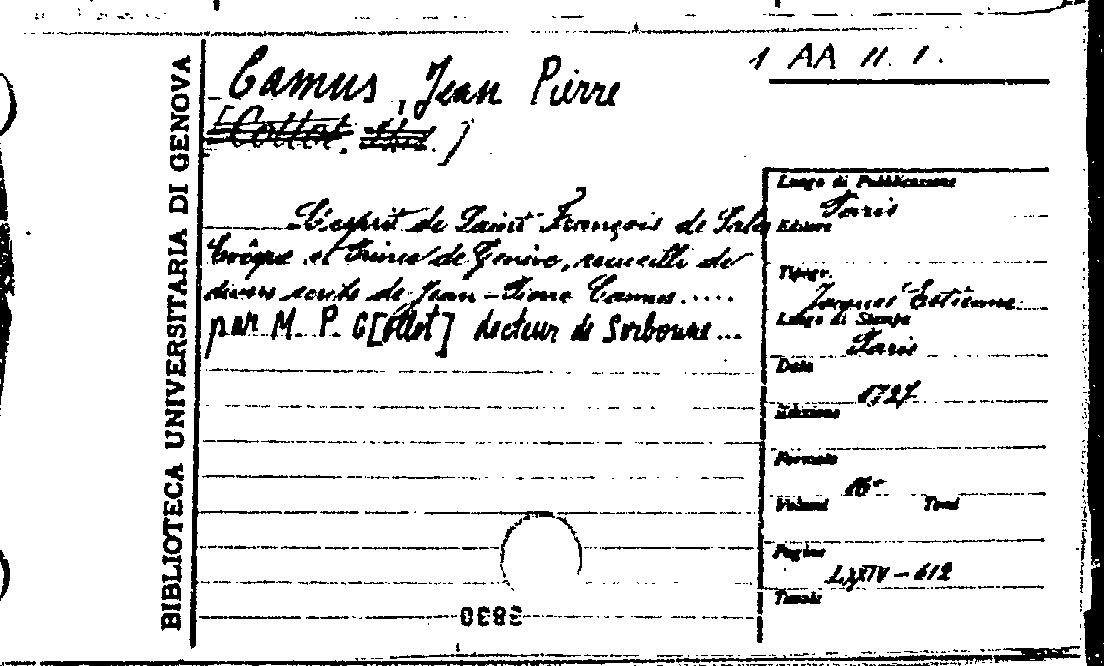 BIBLIOTECA UNIVERSITARIA DI GENOVA
1 AA 11. 1.
Camus, Jean Pierre
[Collot. ]
L'esprit de Saint François de Sales
Evêque et Prince de Genève, recueilli de
divers écrits de Jean-Pierre Camus.....
par M. P. C[ollot] docteur de Sorbonne...
Luogo di Pubblicazione
Paris
Editore
Tipogr.
Jacques Estienne
Luogo di Stampa
Paris
Data
1727
Edizione
Formato
16°
Volumi Tomi
Pagine
LXXIV-612
Tavole
3830